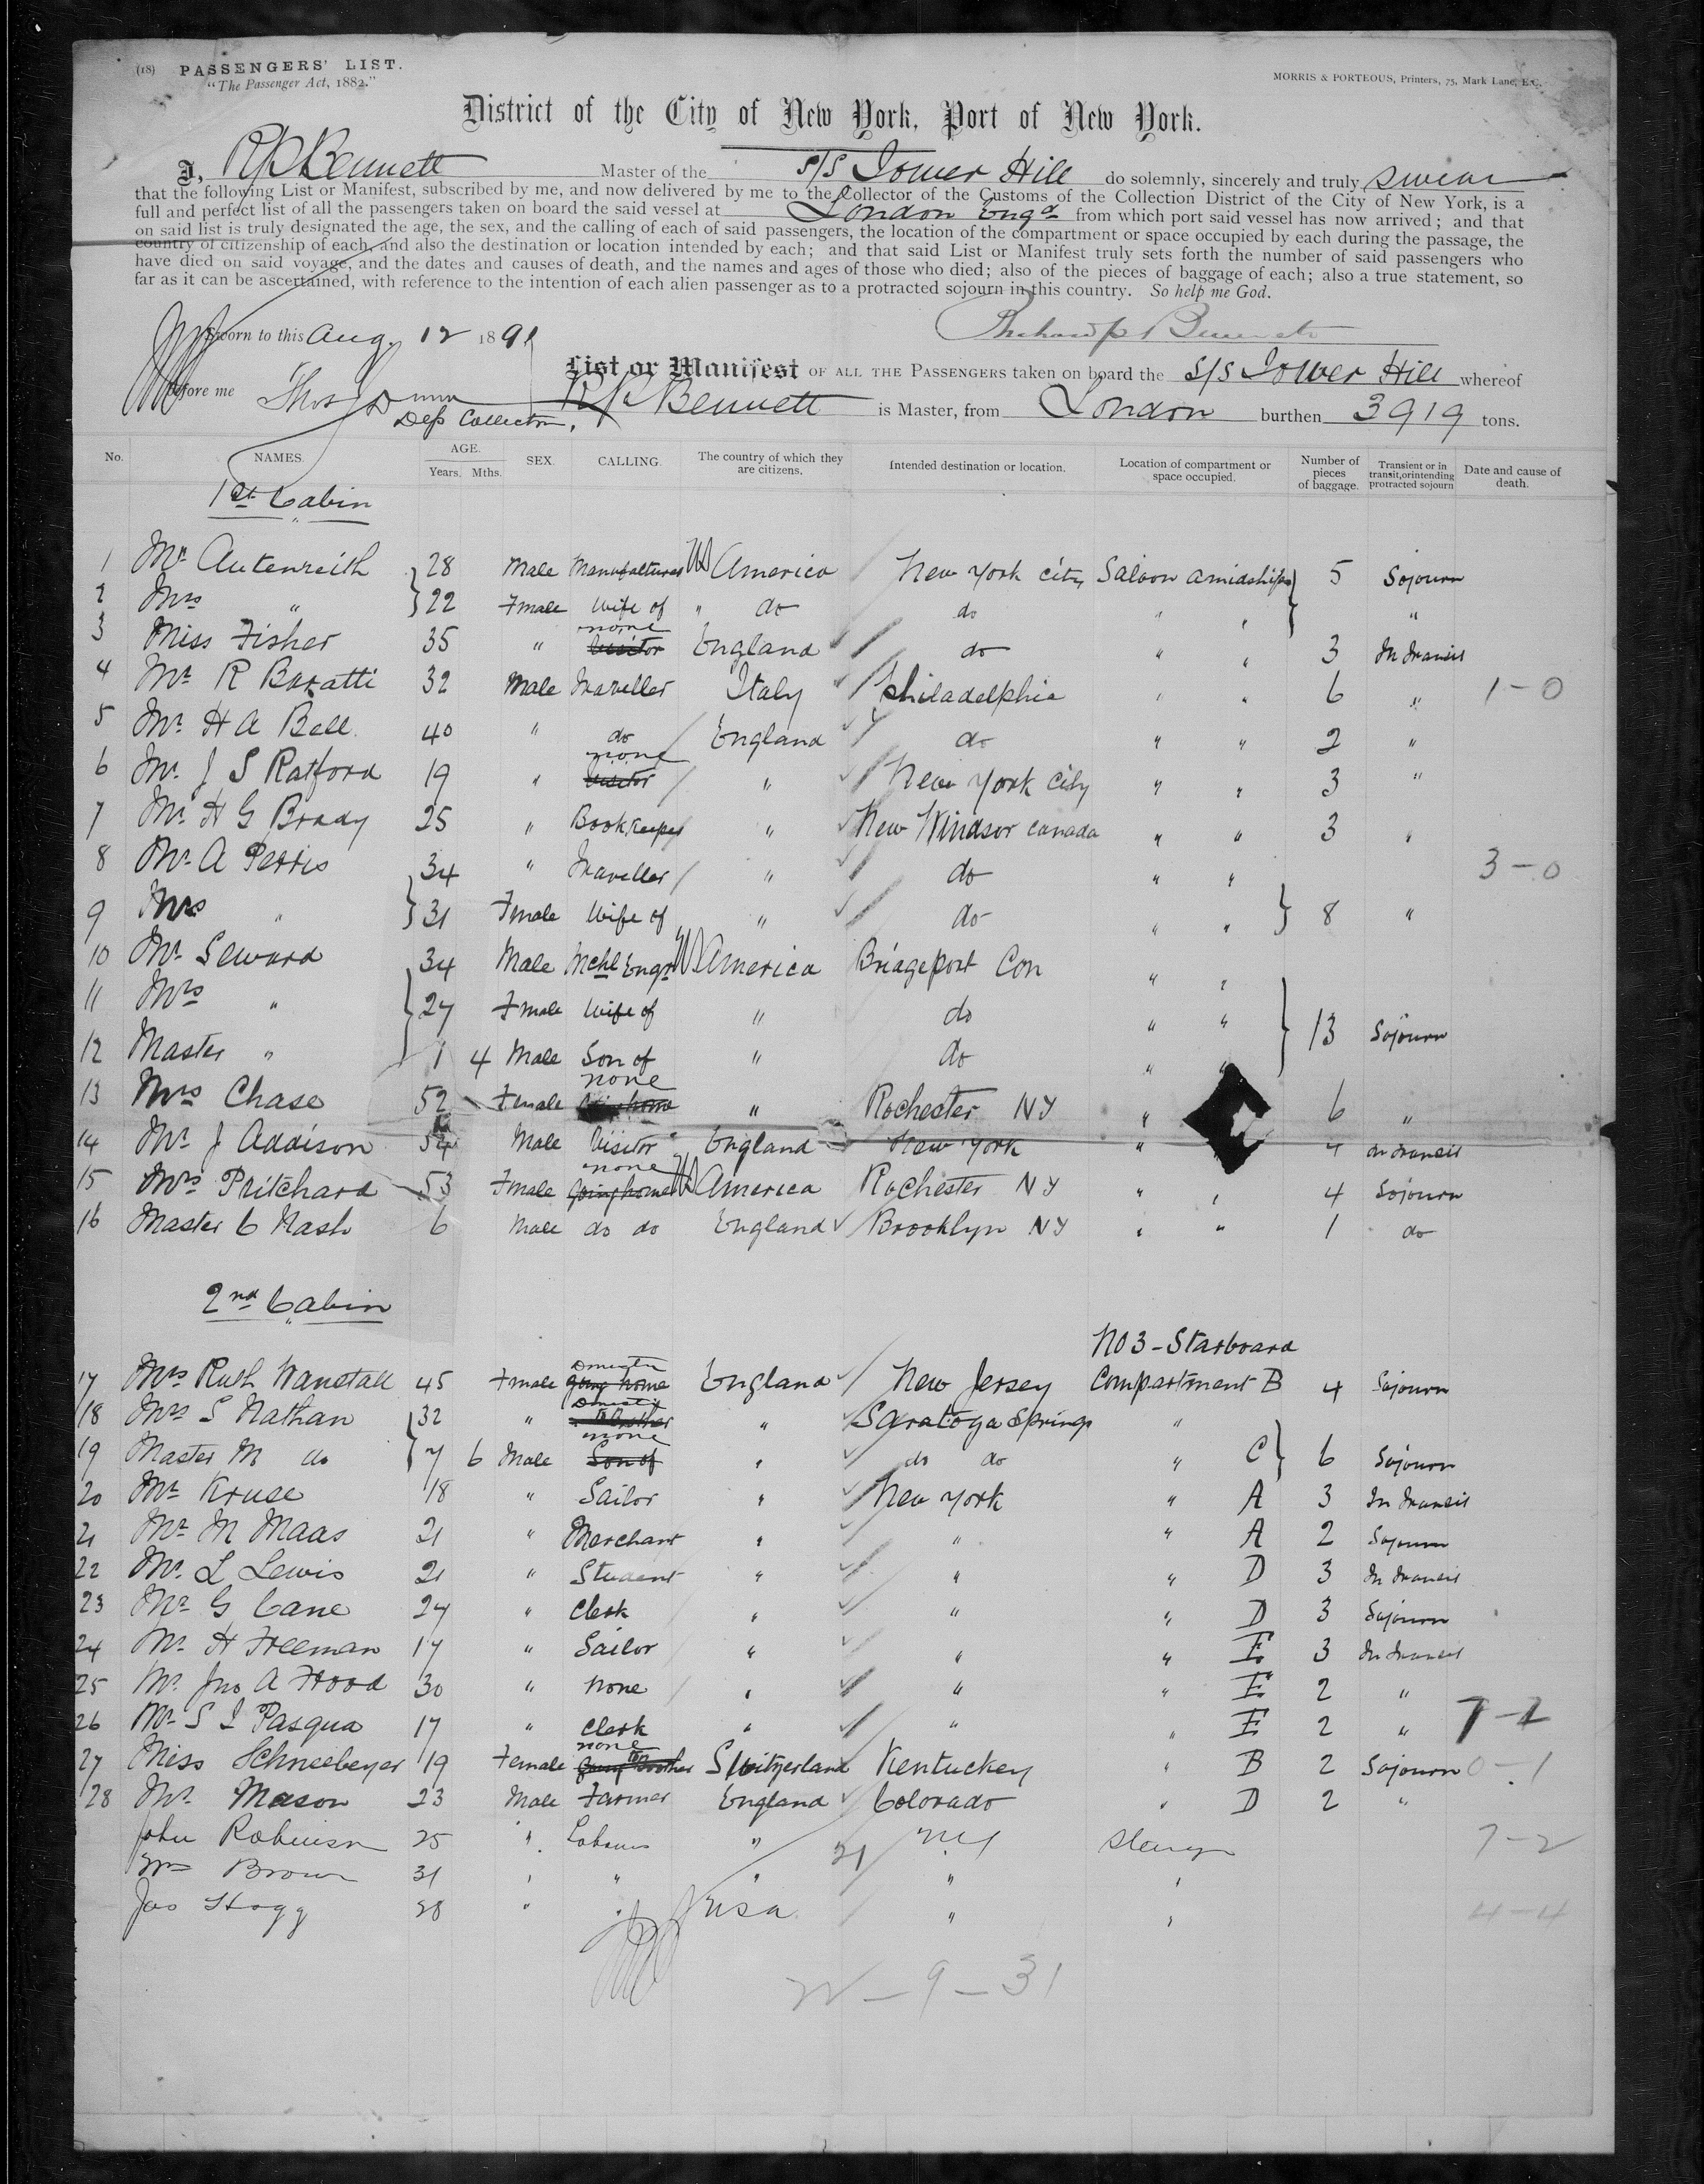 (18) PASSENGERS' LIST.
"The Passenger Act, 1882."
MORRIS & PORTEOUS, Printers, 75, Mark Lane, E.C.
District of the City of New York, Port of New York.
I, R P Bennett Master of the s/s Tower Hill do solemnly, sincerely and truly swear
that the following List or Manifest, subscribed by me, and now delivered by me to the Collector of the Customs of the Collection District of the City of New York, is a
full and perfect list of all the passengers taken on board the said vessel at London Engd from which port said vessel has now arrived; and that
on said list is truly designated the age, the sex, and the calling of each of said passengers, the location of the compartment or space occupied by each during the passage, the
country of citizenship of each, and also the destination or location intended by each; and that said List or Manifest truly sets forth the number of said passengers who
have died on said voyage, and the dates and causes of death, and the names and ages of those who died; also of the pieces of baggage of each; also a true statement, so
far as it can be ascertained, with reference to the intention of each alien passenger as to a protracted sojourn in this country. So help me God.
Richard P Bennett
Sworn to this Aug. 12 1891
List or Manifest OF ALL THE PASSENGERS taken on board the s/s Tower Hill whereof
Before me Thos J Dunn R P Bennett is Master, from London burthen 3919 tons.
Dep Collector.
No. NAMES. AGE. Years. Mths. SEX. CALLING. The country of which they are citizens. Intended destination or location. Location of compartment or space occupied. Number of pieces of baggage. Transient or in transit, or intending protracted sojourn Date and cause of death.
1st Cabin
1 Mr Autenreith 28 Male Manufacturer US America New York City Saloon amidships 5 Sojourn
2 Mrs " 22 Female Wife of " do do " " "
3 Miss Fisher 35 " none Visitor England do " " 3 In Transit
4 Mr R Baratti 32 Male Traveller Italy Philadelphia " " 6 " 1-0
5 Mr H A Bell 40 " do England do " " 2 "
6 Mr J S Ratford 19 " none Visitor " New York City " " 3 "
7 Mr H G Brady 25 " Book Keeper " New Windsor Canada " " 3 "
8 Mr A Perris 34 " Traveller " do " " 3-0
9 Mrs " 31 Female Wife of " do " " 8 "
10 Mr Seward 34 Male Mchl Engr US America Bridgeport Con " "
11 Mrs " 27 Female Wife of " do " " 13 Sojourn
12 Master " 1 4 Male Son of " do " "
13 Mrs Chase 52 Female none going home " Rochester NY " 6 "
14 Mr J Addison 54 Male Visitor England New York " 4 In Transit
15 Mrs Pritchard 53 Female none going home US America Rochester NY " " 4 Sojourn
16 Master C Nash 6 Male do do England Brooklyn NY " " 1 do
2nd Cabin
No 3 - Starboard
17 Mrs Ruth Wanstall 45 Female Domestic going home England New Jersey Compartment B 4 Sojourn
18 Mrs S Nathan 32 " Domestic to Brother " Saratoga Springs "
19 Master M do 7 6 Male none Son of " do do " C 6 Sojourn
20 Mr Kruse 18 " Sailor " New York " A 3 In Transit
21 Mr M Maas 21 " Merchant " " " A 2 Sojourn
22 Mr L Lewis 21 " Student " " " D 3 In Transit
23 Mr G Cane 27 " Clerk " " " D 3 Sojourn
24 Mr H Freeman 17 " Sailor " " " E 3 In Transit
25 Mr Jno A Hood 30 " None " " " E 2 "
26 Mr S I Pasqua 17 " Clerk " " " E 2 " 7-2
27 Miss Schneebeyer 19 Female none going to Brother Switzerland Kentucky " B 2 Sojourn 0-1
28 Mr Mason 23 Male Farmer England Colorado " D 2 "
John Robinson 25 " Laborer " 21 N.Y Steerage 7-2
Wm Brown 31 " " " " "
Jas Hogg 28 " " USA " " 4-4
W-9-31